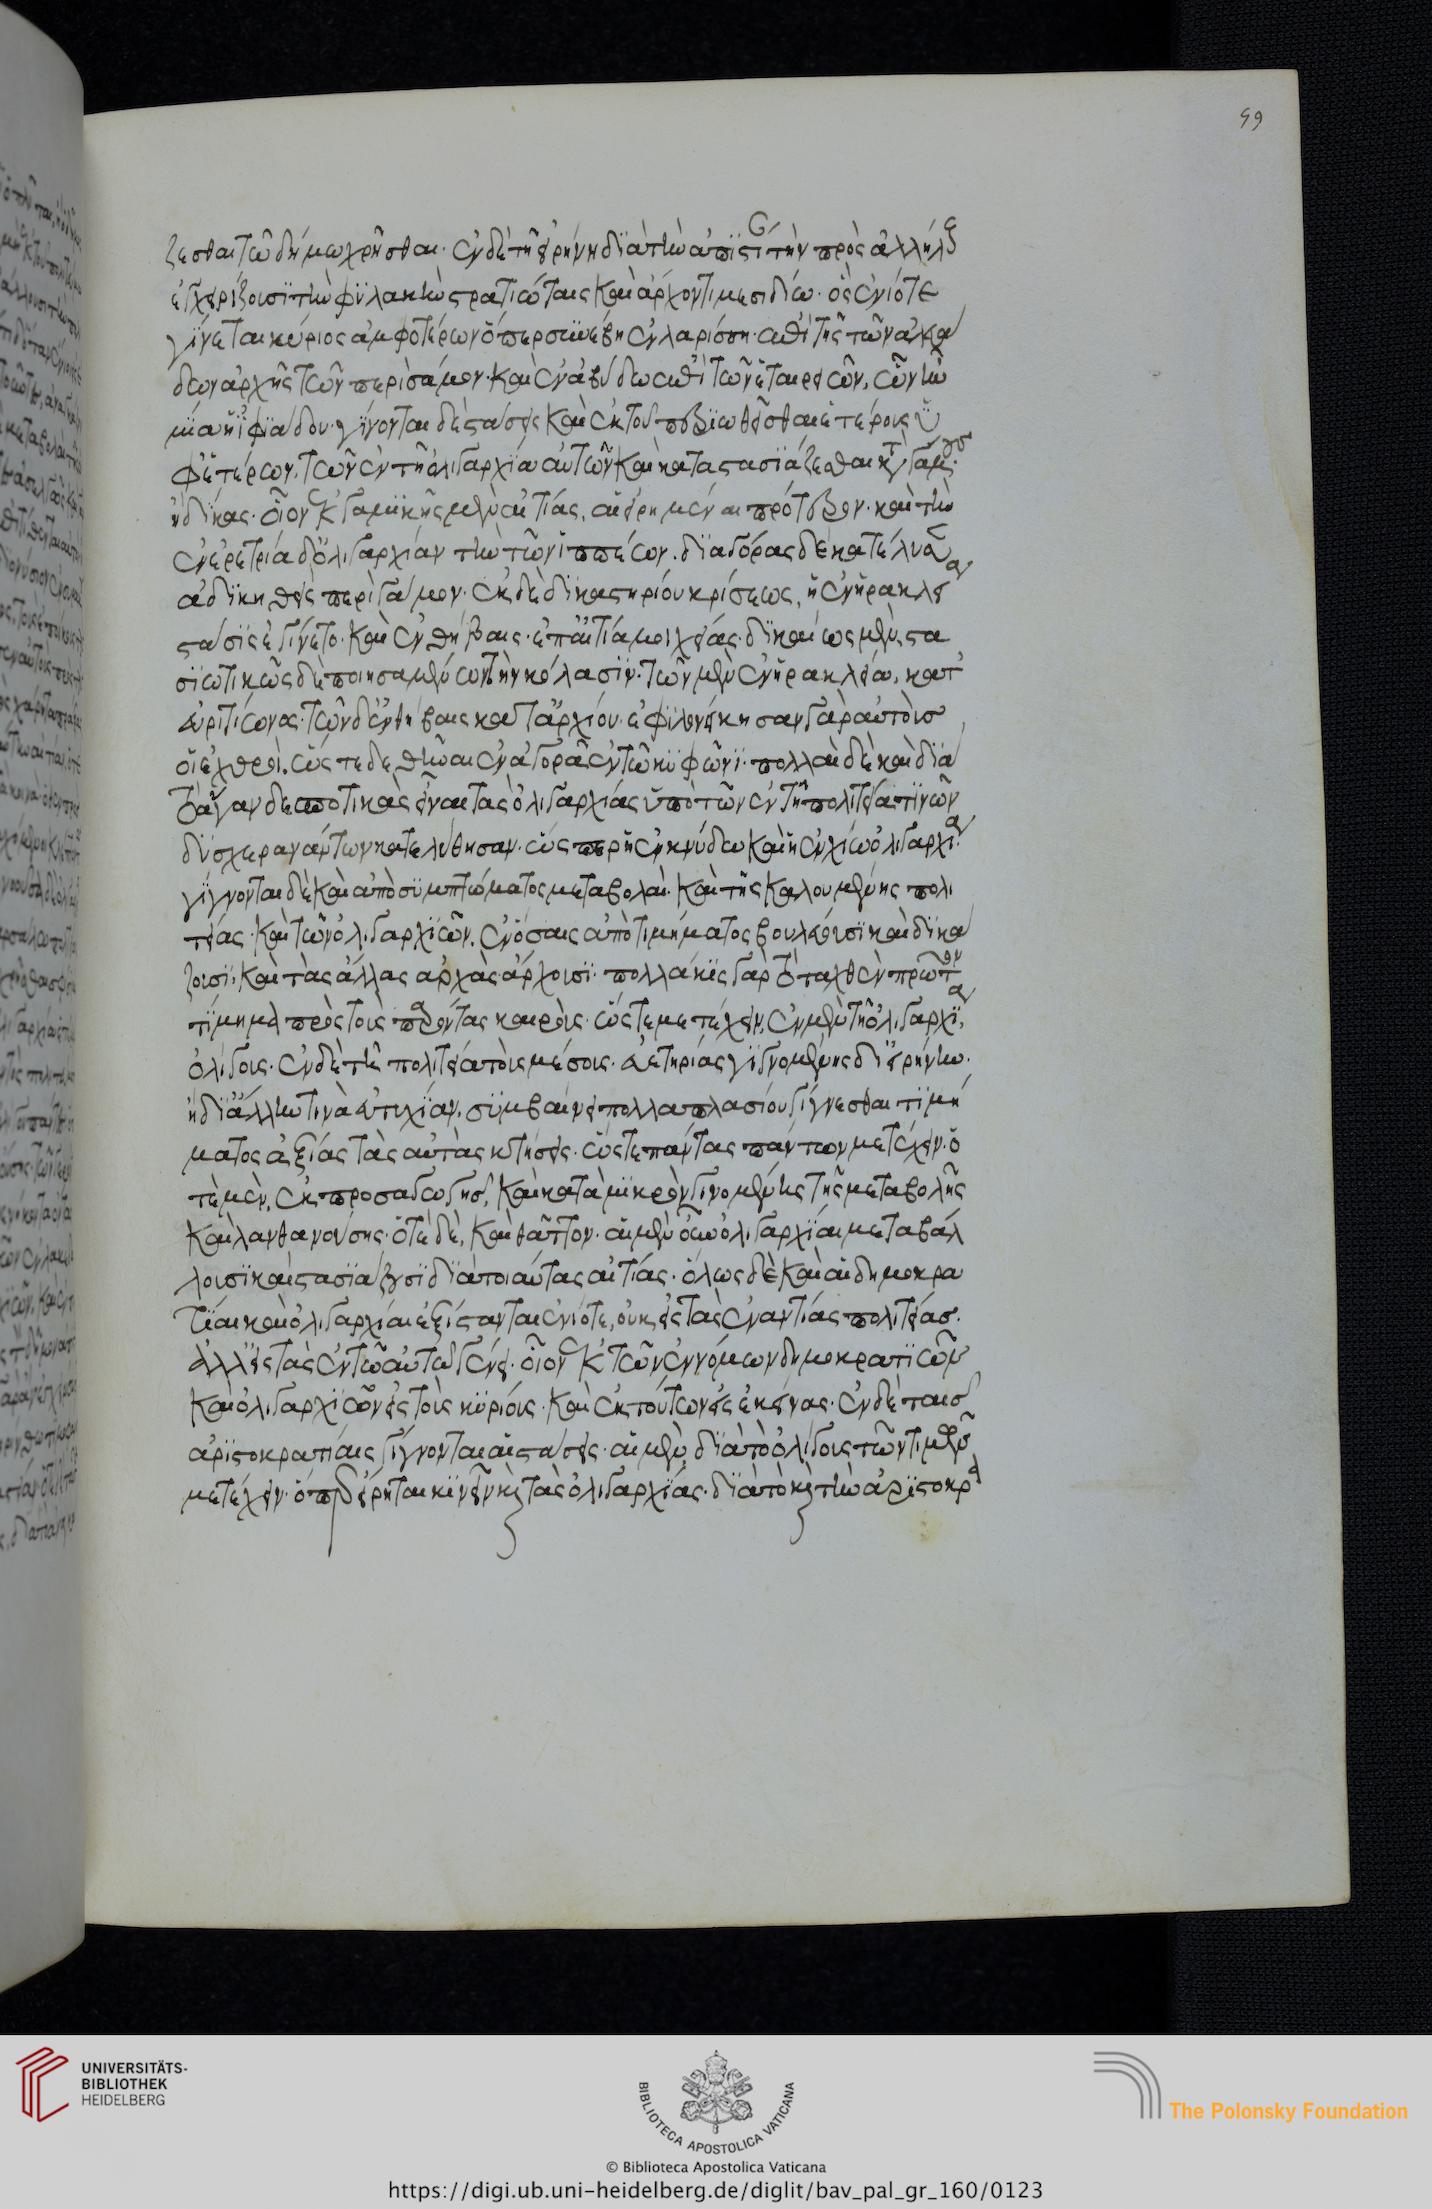 59
ζεσθαι τῶ δήμω χρῆσθαι· ἐν δὲ τῆ εἰρήνη διὰ τὴν ἀπιστίαν τὴν πρὸς ἀλλήλους
ἐγχειρίζουσι τὴν φυλακὴν στρατιώταις καὶ ἄρχοντι μεσιδίω· ὃς ἐνίοτε
γίνεται κύριος ἀμφοτέρων ὅπερ συνέβη ἐν λαρίσση· ἐπὶ τῆς τῶν ἀλευα
δων ἀρχῆς τῶν περὶ σάμον· καὶ ἐν ἀβύδω ἐπὶ τῶν ἑταιρειῶν, ὧν ἦν
μία ἡ ἰφιάδου· γίνονται δὲ στάσεις καὶ ἐκ τοῦ περιωθεῖσθαι ἑτέρους ὑ
φ' ἑτέρων, τῶν ἐν τῆ ὀλιγαρχία αὐτῶν καὶ καταστασιάζεσθαι κατὰ γάμους
ἢ δίκας· οἷον ἐκ γαμικῆς μὲν αἰτίας, αἱ εἰρημέναι πρότερον· καὶ τὴν
ἐν ἐρετρία δ' ὀλιγαρχίαν τὴν τῶν ἱππέων· διαγόρας δὲ κατέλυσεν
ἀδικηθεὶς περὶ γάμον· ἐκ δὲ δικαστηρίου κρίσεως, ἡ ἐν ἡρακλεία
στάσις ἐγένετο· καὶ ἐν θήβαις· ἐπ' αἰτία μοιχείας· δικαίως μὲν στα
σιωτικῶς δὲ ποιησαμένων τὴν κόλασιν· τῶν μὲν ἐν ἡρακλεία, κατ'
εὐριτίωνος· τῶν δ' ἐν θήβαις κατ' ἀρχίου· ἐφιλονείκησαν γὰρ αὐτοὺς
οἱ ἐχθροὶ, ὥστε δεθῆναι ἐν ἀγορᾶ ἐν τῶ κυφῶνι· πολλαὶ δὲ καὶ διὰ
τὸ ἄγαν δεσποτικὰς εἶναι τὰς ὀλιγαρχίας ὑπὸ τῶν ἐν τῆ πολιτεία τινῶν
δυσχερανάντων κατελύθησαν· ὥσπερ ἡ ἐν κνίδω καὶ ἡ ἐν χίω ὀλιγαρχία·
γίγνονται δὲ καὶ ἀπὸ συμπτώματος μεταβολαὶ· καὶ τῆς καλουμένης πολι
τείας· καὶ τῶν ὀλιγαρχιῶν, ἐν ὅσαις ἀπὸ τιμήματος βουλεύουσι καὶ δικά
ζουσι· καὶ τὰς ἄλλας ἀρχὰς ἄρχουσι· πολλάκις γὰρ τὸ ταχθὲν πρῶτον
τίμημα πρὸς τοὺς παρόντας καιροὺς· ὥστε μετέχειν, ἐν μὲν τῆ ὀλιγαρχία,
ὀλίγους· ἐν δὲ τῆ πολιτεία τοὺς μέσους· εὐετηρίας γιγνομένης δι' εἰρήνην·
ἢ δι' ἄλλην τινὰ εὐτυχίαν, συμβαίνει πολλαπλασίου γίγνεσθαι τιμή
ματος ἀξίας τὰς αὐτὰς κτήσεις· ὥστε πάντας πάντων μετέχειν· ὁ
τὲ μὲν, ἐκ προσαγωγῆς, καὶ κατὰ μικρὸν γινομένης τῆς μεταβολῆς
καὶ λανθανούσης· ὁτὲ δὲ, καὶ θᾶττον· αἱ μὲν οὖν ὀλιγαρχίαι μεταβάλ
λουσι καὶ στασιάζουσι διὰ τοιαύτας αἰτίας· ὅλως δὲ καὶ αἱ δημοκρα
τίαι καὶ ὀλιγαρχίαι ἐξίστανται ἐνίοτε, οὐκ εἰς τὰς ἐναντίας πολιτείας·
ἀλλ' εἰς τὰς ἐν τῶ αὐτῶ γένει· οἷον ἐκ τῶν ἐννόμων δημοκρατιῶν
καὶ ὀλιγαρχιῶν εἰς τοὺς κυρίους· καὶ ἐκ τούτων εἰς ἐκείνας· ἐν δὲ ταῖς
ἀριστοκρατίαις γίγνονται αἱ στάσεις· αἱ μὲν διὰ τὸ ὀλίγους τῶν τιμῶν
μετέχειν· ὅπερ εἴρηται κινεῖν καὶ τὰς ὀλιγαρχίας· διὰ τὸ καὶ τὴν ἀριστοκρα
UNIVERSITÄTS-
BIBLIOTHEK
HEIDELBERG
BIBLIOTECA APOSTOLICA VATICANA
The Polonsky Foundation
© Biblioteca Apostolica Vaticana
https://digi.ub.uni-heidelberg.de/diglit/bav_pal_gr_160/0123